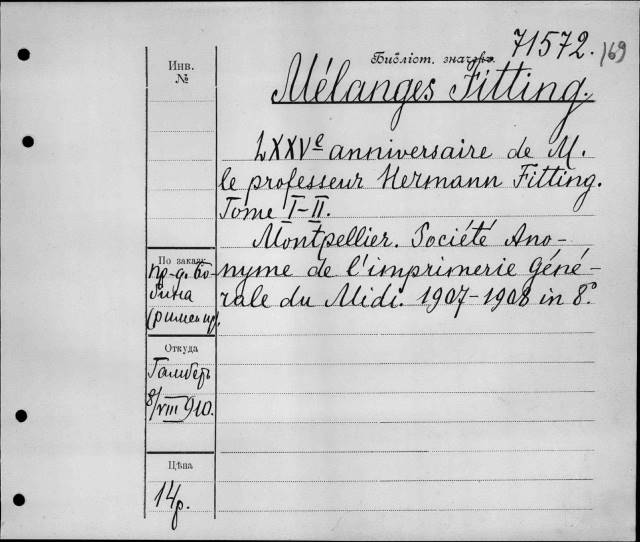 71572.
169
Библіот. значекъ.
Инв.
№
Mélanges Fitting.
LXXVe anniversaire de M.
le professeur Hermann Fitting.
Tome I-II.
Montpellier. Société Ano-
nyme de l'imprimerie Géné-
rale du Midi. 1907-1908 in 8°.
По заказу
пр-д. Бо-
бина
Откуда
Гамберъ
8/VIII 910.
Цѣна
14 р.